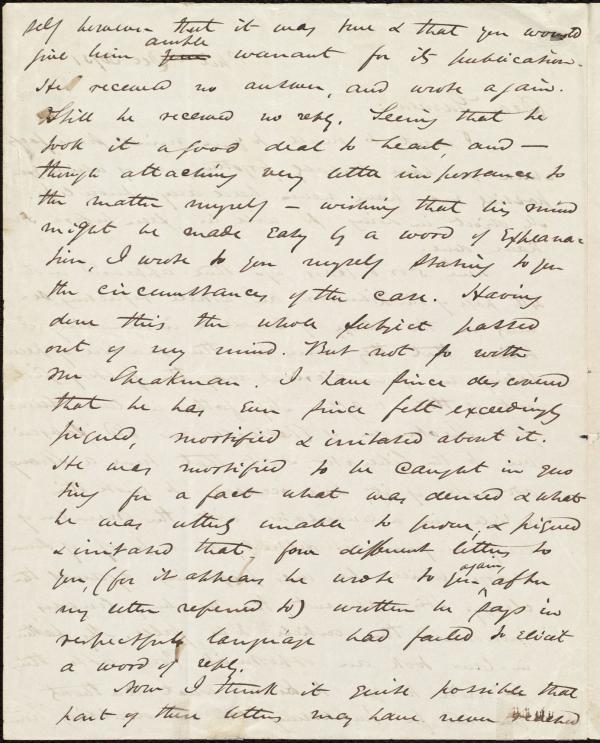 self however that it was true & that you would
give him ample warrant for its publication.
He received no answer, and wrote again.
Still he received no reply. Seeing that he
took it a good deal to heart, and —
though attaching very little importance to
the matter myself — wishing that his mind
might be made easy by a word of explana-
tion, I wrote to you myself stating to you
the circumstances of the case. Having
done this the whole subject passed
out of my mind. But not so with
Mr Speakman. I have since discovered
that he has ever since felt exceedingly
piqued, mortified & irritated about it.
He was mortified to be caught in quo
ting for a fact what was denied & what
he was utterly unable to prove, & piqued
& irritated that, four different letters to
you, (for it appears he wrote to you again, after
my letter referred to) written he says in
respectful language had failed to elicit
a word of reply.
Now I think it quite possible that
part of these letters may have never reached